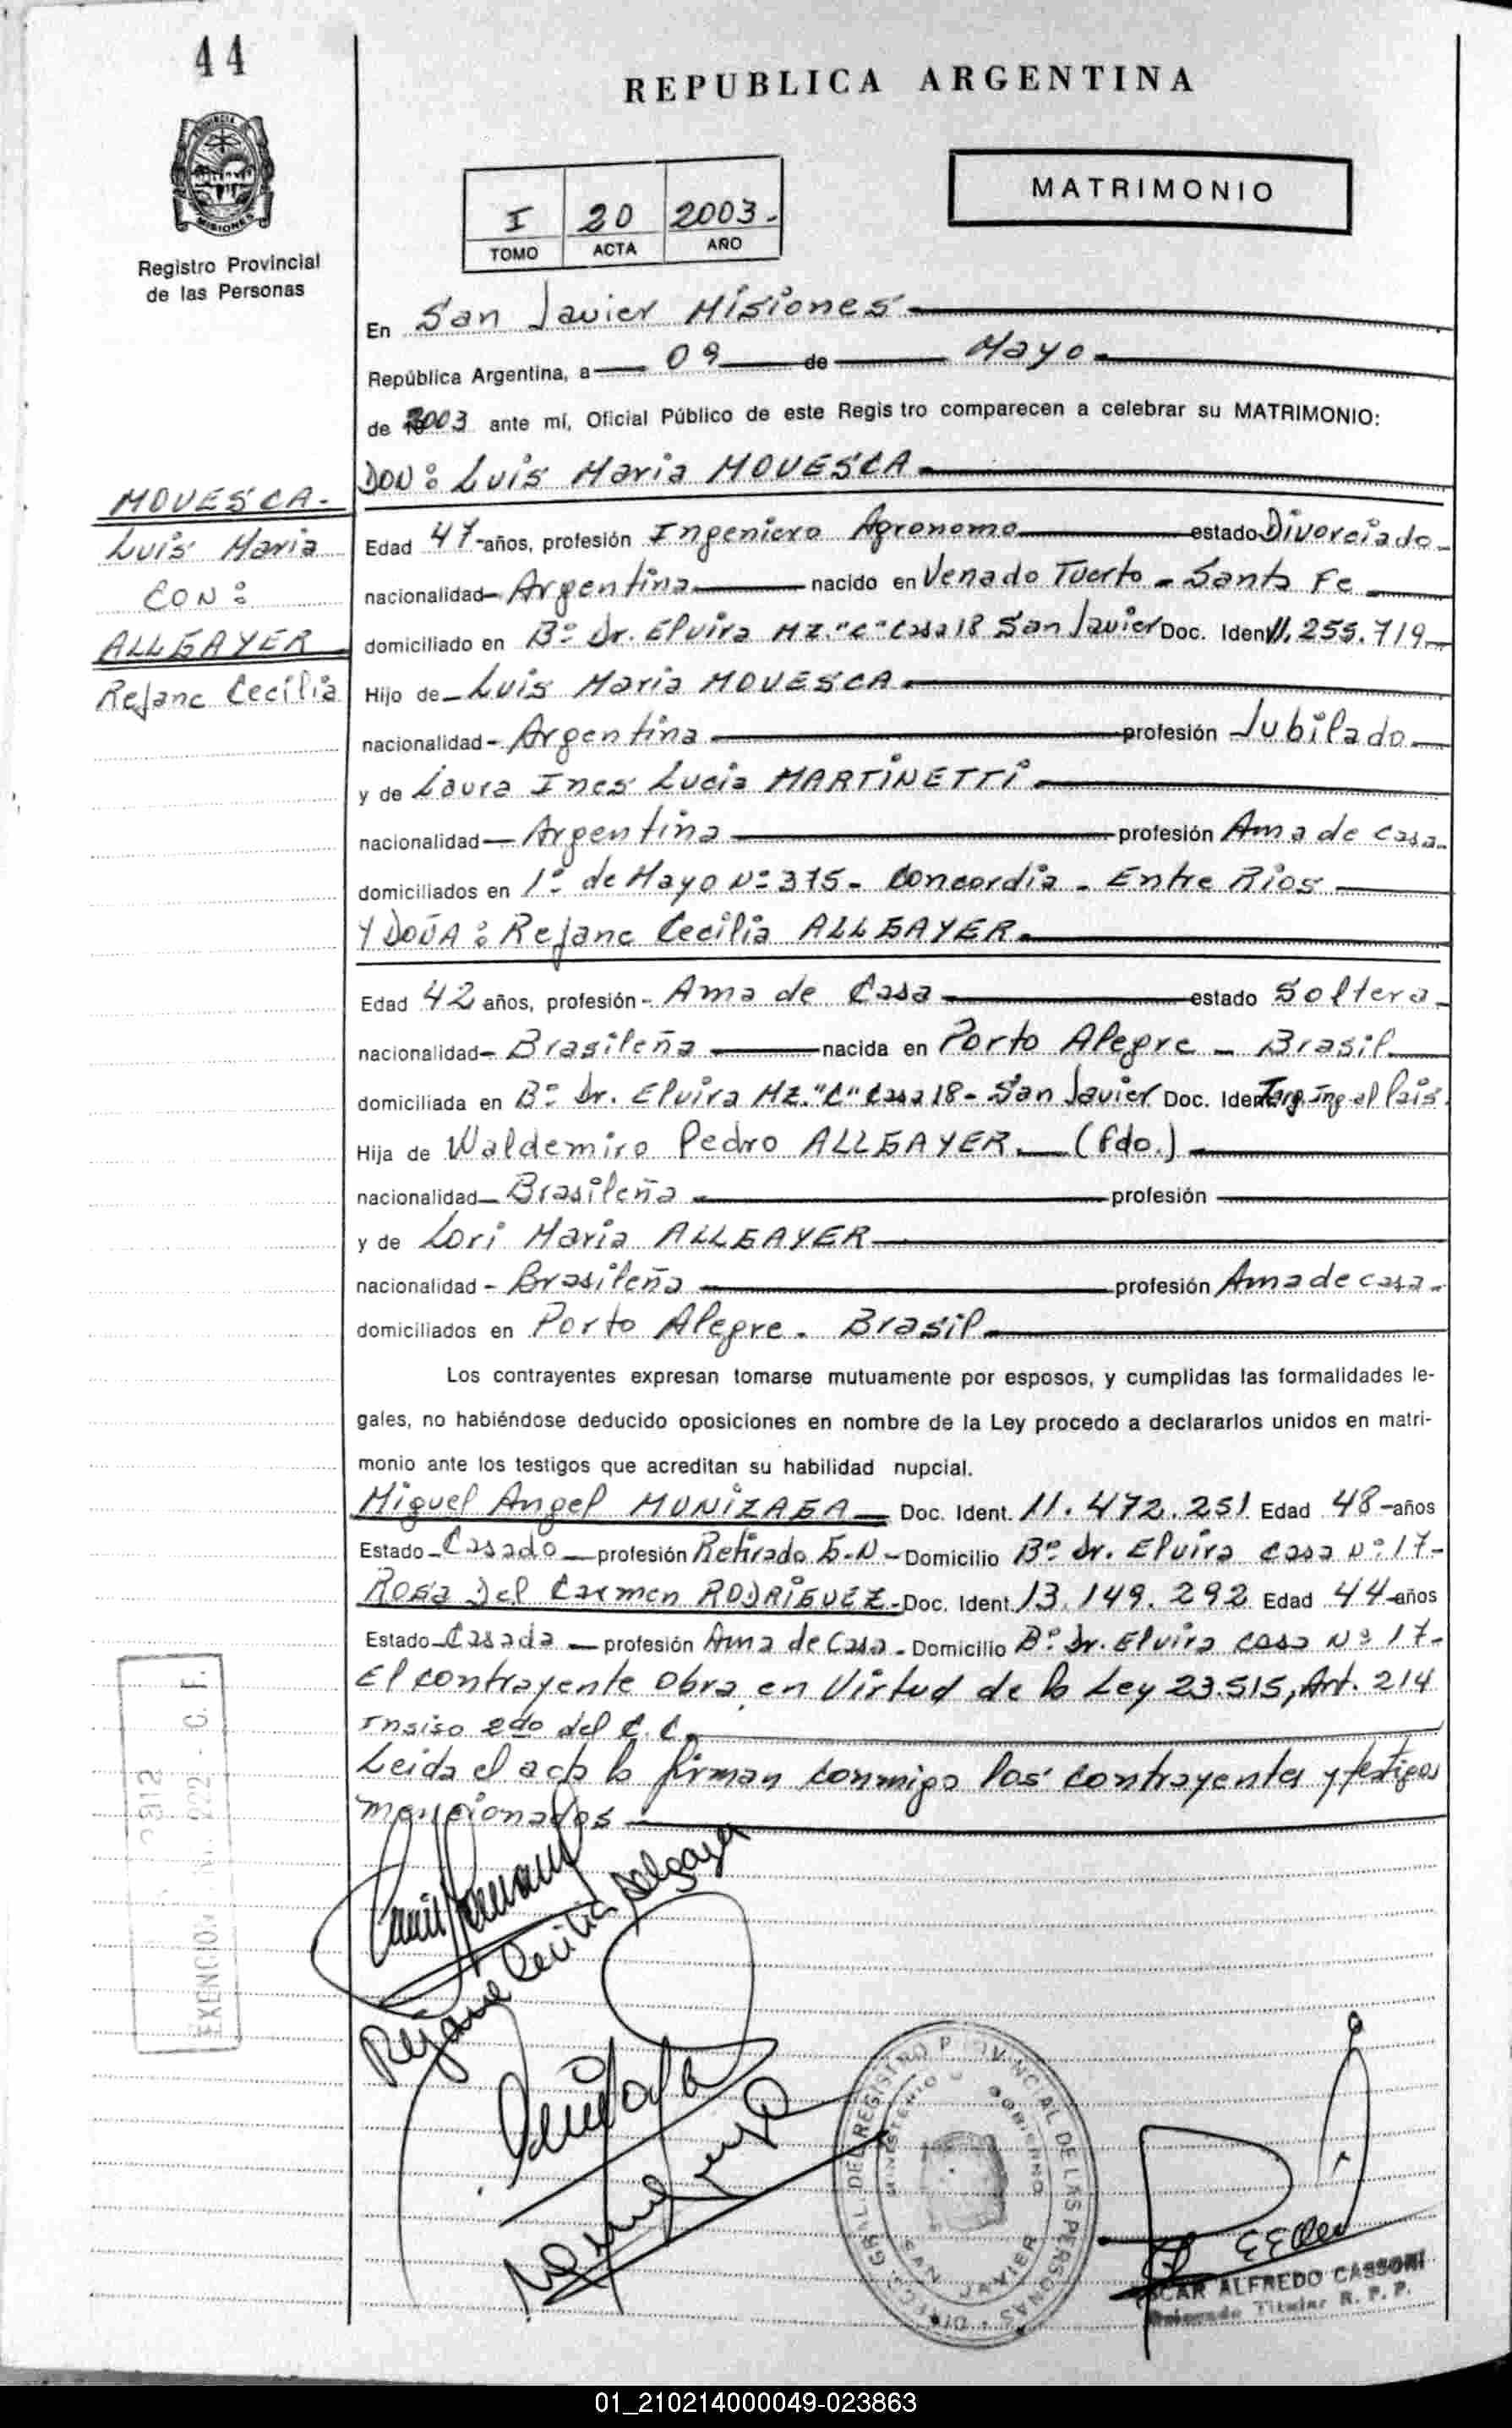 44
REPUBLICA ARGENTINA
MATRIMONIO
I 20 2003.-
TOMO ACTA AÑO
PROVINCIA
MISIONES
Registro Provincial
de las Personas
En San Javier Misiones
República Argentina, a 09 de Mayo
de 2003 ante mí, Oficial Público de este Regis tro comparecen a celebrar su MATRIMONIO:
DON: Luis Maria MOVESCA
MOVESCA.-
Luis Maria
CON:
ALLGAYER
Rejane Cecilia
Edad 47 años, profesión Ingeniero Agronomo estado Divorciado
nacionalidad Argentina nacido en Venado Tuerto - Santa Fe
domiciliado en Bº Dr. Elvira MZ. "C" Casa 18 San Javier Doc. Iden 11.255.719
Hijo de Luis Maria MOVESCA
nacionalidad Argentina profesión Jubilado
y de Laura Ines Lucia MARTINETTI
nacionalidad Argentina profesión Ama de casa
domiciliados en 1º de Mayo Nº 375 - Concordia - Entre Rios
Y DOÑA: Rejane Cecilia ALLGAYER
Edad 42 años, profesión Ama de Casa estado Soltera
nacionalidad Brasileña nacida en Porto Alegre - Brasil
domiciliada en Bº Dr. Elvira MZ. "C" Casa 18 - San Javier Doc. Iden Tarj. Ing. al Pais
Hija de Waldemiro Pedro ALLGAYER (fdo.)
nacionalidad Brasileña profesión
y de Lori Maria ALLGAYER
nacionalidad Brasileña profesión Ama de casa
domiciliados en Porto Alegre - Brasil
Los contrayentes expresan tomarse mutuamente por esposos, y cumplidas las formalidades le-
gales, no habiéndose deducido oposiciones en nombre de la Ley procedo a declararlos unidos en matri-
monio ante los testigos que acreditan su habilidad nupcial.
Miguel Angel MUNIZAGA Doc. Ident. 11.472.251 Edad 48 años
Estado Casado profesión Retirado G.N. Domicilio Bº Dr. Elvira casa Nº 17
Rosa Del Carmen RODRIGUEZ Doc. Ident. 13.149.292 Edad 44 años
Estado Casada profesión Ama de Casa Domicilio Bº Dr. Elvira casa Nº 17
El contrayente Obra en Virtud de la Ley 23.515, Art. 214
Insiso 2do del C.C.
Leida el acta la firman conmigo los contrayentes y testigos
mencionados
EXENCION 222 - G. F.
Rejane Cecilia Allgayer
DIREC. GRAL. DEL REGISTRO PROVINCIAL DE LAS PERSONAS
MINISTERIO GOBIERNO
SAN JAVIER
ALFREDO CASSONI
Titular R. P. P.
01_210214000049-023863